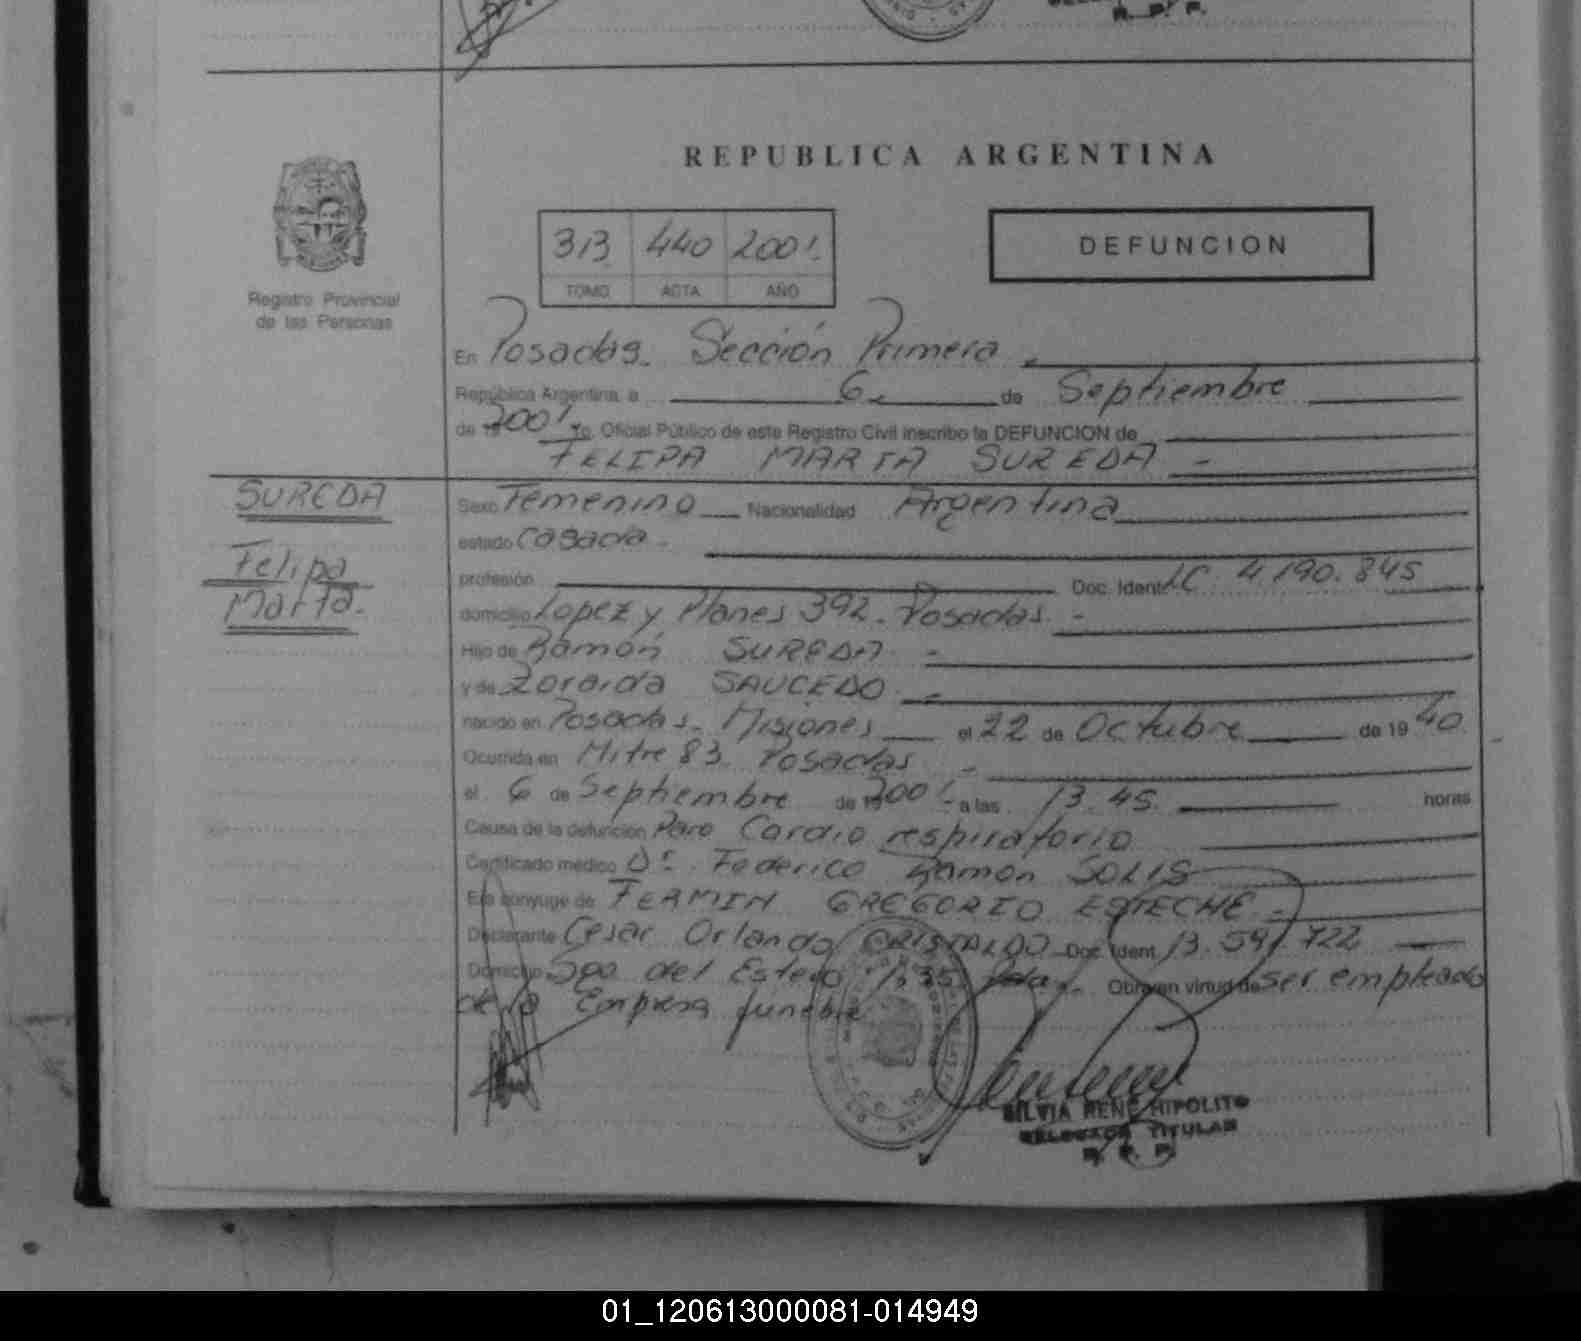 R. P. P.
REPUBLICA ARGENTINA
313 440 2001.
TOMO ACTA AÑO
DEFUNCION
Registro Provincial
de las Personas
En Posadas. Sección Primera
República Argentina, a 6 de Septiembre
de 19 2001 Yo, Oficial Público de este Registro Civil inscribo la DEFUNCION de
FELIPA MARTA SUREDA -
SUREDA
Felipa
Marta.-
Sexo Femenino Nacionalidad Argentina
estado casada.
profesión Doc. Ident. LC 4.190.845
domicilio Lopez y Planes 392. Posadas. -
Hijo de Ramón SUREDA -
y de Zoraida SAUCEDO. -
nacido en Posadas. Misiones el 22 de Octubre de 19 40.
Ocurrida en Mitre 83. Posadas -
el 6 de Septiembre de 19 2001 a las 13.45. horas
Causa de la defunción Paro Cardio respiratorio
Certificado médico Dr. Federico Ramon SOLIS
Era cónyuge de FERMIN GREGORIO ESTECHE. -
Declarante Cesar Orlando CRISTALDO Doc. Ident.
Domicilio Sgo del Estero Obra en virtud de ser empleado
de la Empresa funebre
SILVIA RENE HIPOLITO
DELEGADA TITULAR
R. P. P.
01_120613000081-014949